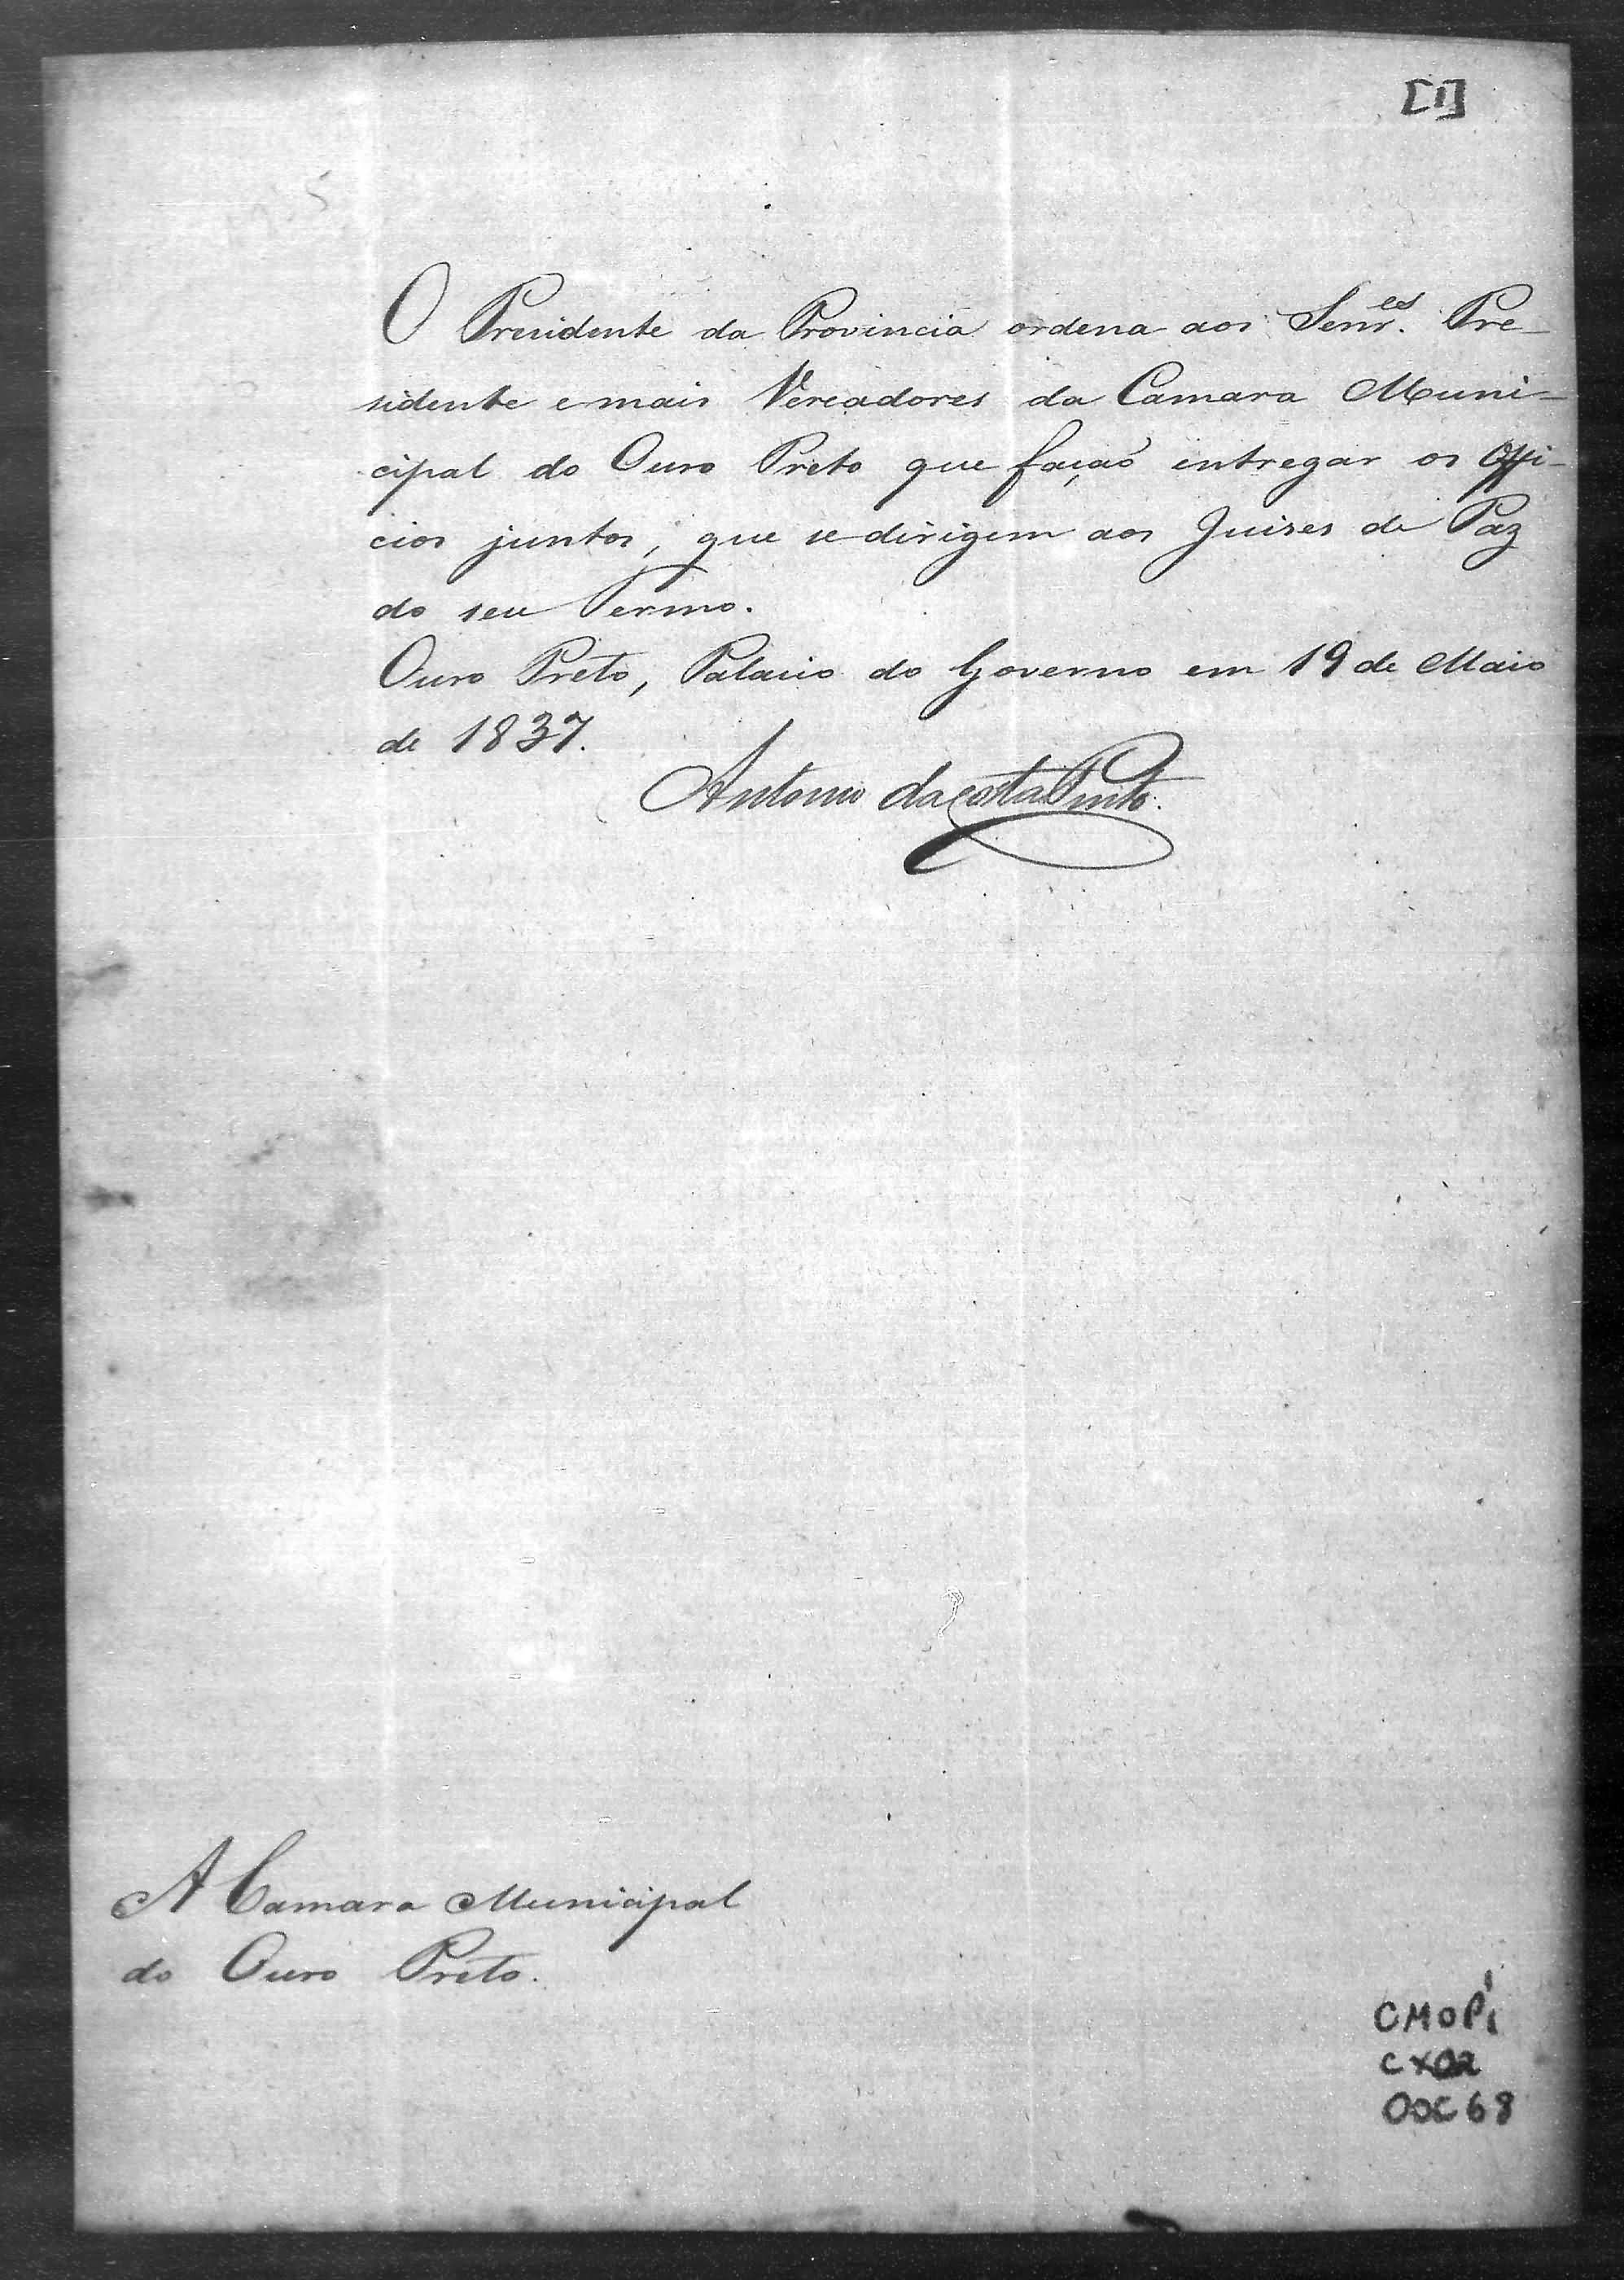 [1]
O Presidente da Provincia ordena aos Senr.es Pre-
sidente e mais Vereadores da Camara Muni-
cipal do Ouro Preto que fação entregar os Offi-
cios juntos, que se dirigem aos Juises de Paz
do seu Termo.
Ouro Preto, Palacio do Governo em 19 de Maio
de 1837.
Antonio da Costa Pinto.
A Camara Municipal
do Ouro Preto.
CMOP
CX02
DOC 68